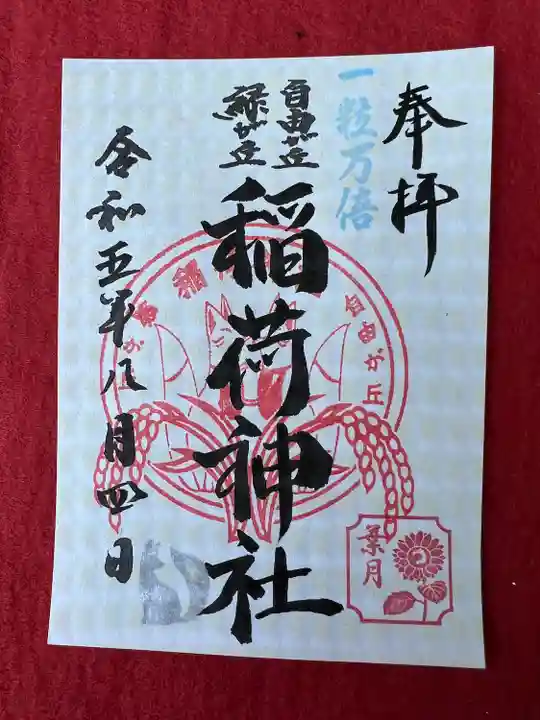 奉拝
一粒万倍
自由が丘
緑が丘
稲荷神社
令和五年八月四日
自由が丘
葉月